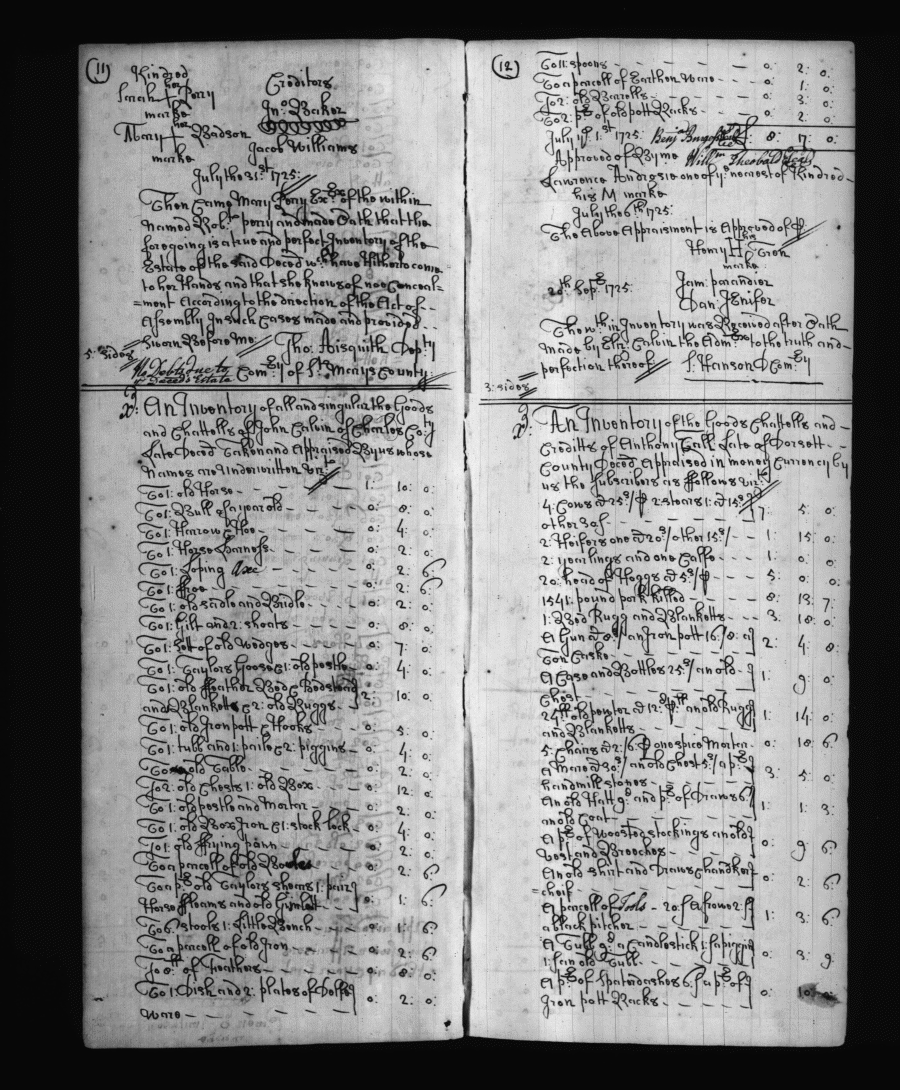 (11)
Kindred
Sarah her Perry
marke
Mary her Badson
marke
Creditors
Jno: Baker
Jacob Williams
July the 31:st 1725:
Then Came Mary Perry Exex: of the within
named Robt: perry and made Oath that the
foregoing is a true and perfect Inventory of the
Estate of the said Deced wch: have Hitherto come
to her Hands and that she knows of noe Conceal=
=ment According to the direction of the Act of
Assembly In such Cases made and provided
Sworn Before Me
Tho: Aisquith Depty
5: sides
No Debts due to
ye Deced's Estate
Comry of St: Marys County
Ex: An Inventory of all and singular the Goods
and Chattells of John Calvin of Charles Coty
Late Deced Taken and Appraised By us whose
Names are Underwritten Vizt
To 1: old Horse 1: 10: 0:
To 1: Bull of a year old 0: 8: 0:
To 1: Harrow & Hoe 0: 4: 0:
To 1: Horse Harness 0: 2: 0:
To 1: Loping Axe 0: 2: 6:
To 1: ffroe 0: 2: 6:
To 1: old sadle and Bridle 0: 2: 0:
To 1: Gilt and 2: shoats 0: 8: 0:
To 1: sett of old Wedges 0: 7: 0:
To 1: Taylors Goose & 1: old pestle 0: 4: 0:
To 1: old ffeather Bed & Bedstead
and Blanketts & 2: old Ruggs 2: 10: 0:
To 1: old Iron pott & Hooks 0: 5: 0:
To 1: tubb and 1: paile & 2: piggins 0: 4: 0:
To old Table 0: 2: 0:
To 2: old Chests 1: old Box 0: 12: 0:
To 1: old pestle and Mortar 0: 2: 0:
To 1: old Box Iron & 1: stock lock 0: 4: 0:
To 1: old ffrying pann 0: 2: 0:
To a parcell of old Books 0: 2: 6:
To a pr: old Taylors shears 1: pair
Horse ffleams and old Gimlett 0: 1: 6:
To 6: stools 1: Little Bench 0: 1: 6:
To a parcell of old Iron 0: 2: 6:
To 8:tt of Feathers 0: 8: 0:
To 1: Dish and 2: plates of Delfe
ware 0: 2: 0:
(12)
To 11: spoons 0: 2: 0:
To a parcell of Earthen Ware 0: 1: 0:
To 2: old Barrells 0: 3: 0:
To 2: ps: of old pott Racks 0: 2: 0:
July ye: 1:st 1725: 8: 17: 0:
Approved of By me Willm Theobald
Lawrence Andrews one of ye: nearest of Kindred
his M marke
July the 6th 1725:
The Above Appraisment is Approved of P
Henry his H Tron
marke
20th Sepr 1725:
Jam: parandier
Dan: Jenifer
The wthin Inventory was Received after Oath
made by Eliz: Calvin the Admx to the truth and
perfection thereof
S: Hanson D Comry
3: sides
Ex: An Inventory of the Goods Chattells and
Creditts of Anthony Tall Late of Dorsett
County Deced Appraised in money Currency by
us the subscribers as follows viz:
4: Cows @ 25s/ P 2: stears 1: @ 15s:
other 30s 7: 5: 0:
2: Heifers one @ 20s/ other 15:/ 1: 15: 0:
2: yearlings and one Calfe 1: 0: 0:
20: head of Hoggs @ 5s:/ P 5: 0: 0:
1541: pound pork killed 8: 13: 7:
1: Bed Rugg and Blanketts 3: 18: 0:
A Gun @ 8:/ an Iron pott 16:/8: a
Ton Caske 2: 4: 8:
A Case and Bottles 25:/ an old
Chest 1: 9: 0:
24:tt old pewter @ 12:d P:tt an old Rugg
and Blanketts 1: 14: 0:
5: Chairs @ 2:/6: P one spice Mortar 0: 18: 6:
A Mare @ 30:/ an old Chest 5:/ a pr:
handmill stones 3: 5: 0:
An old Hatt 9:d and pr: of Draws 6:
an old Coat 1: 1: 3:
A pr: of Woosteg stockings an old
vest and Breeches 0: 9: 6:
An old shirt and Draws & handker
=cheif 0: 2: 6:
A parcell of Tools - 20:/ a frow 2:/
a black pitcher 1: 3: 6:
A Tubb 9d: a Candlestick 1:/ a piggin
1:/ an old Tubb 0: 3: 9:
A pr: of Spaterdashes 6:/ a pr: of
Iron pott Racks 0: 10: 0: